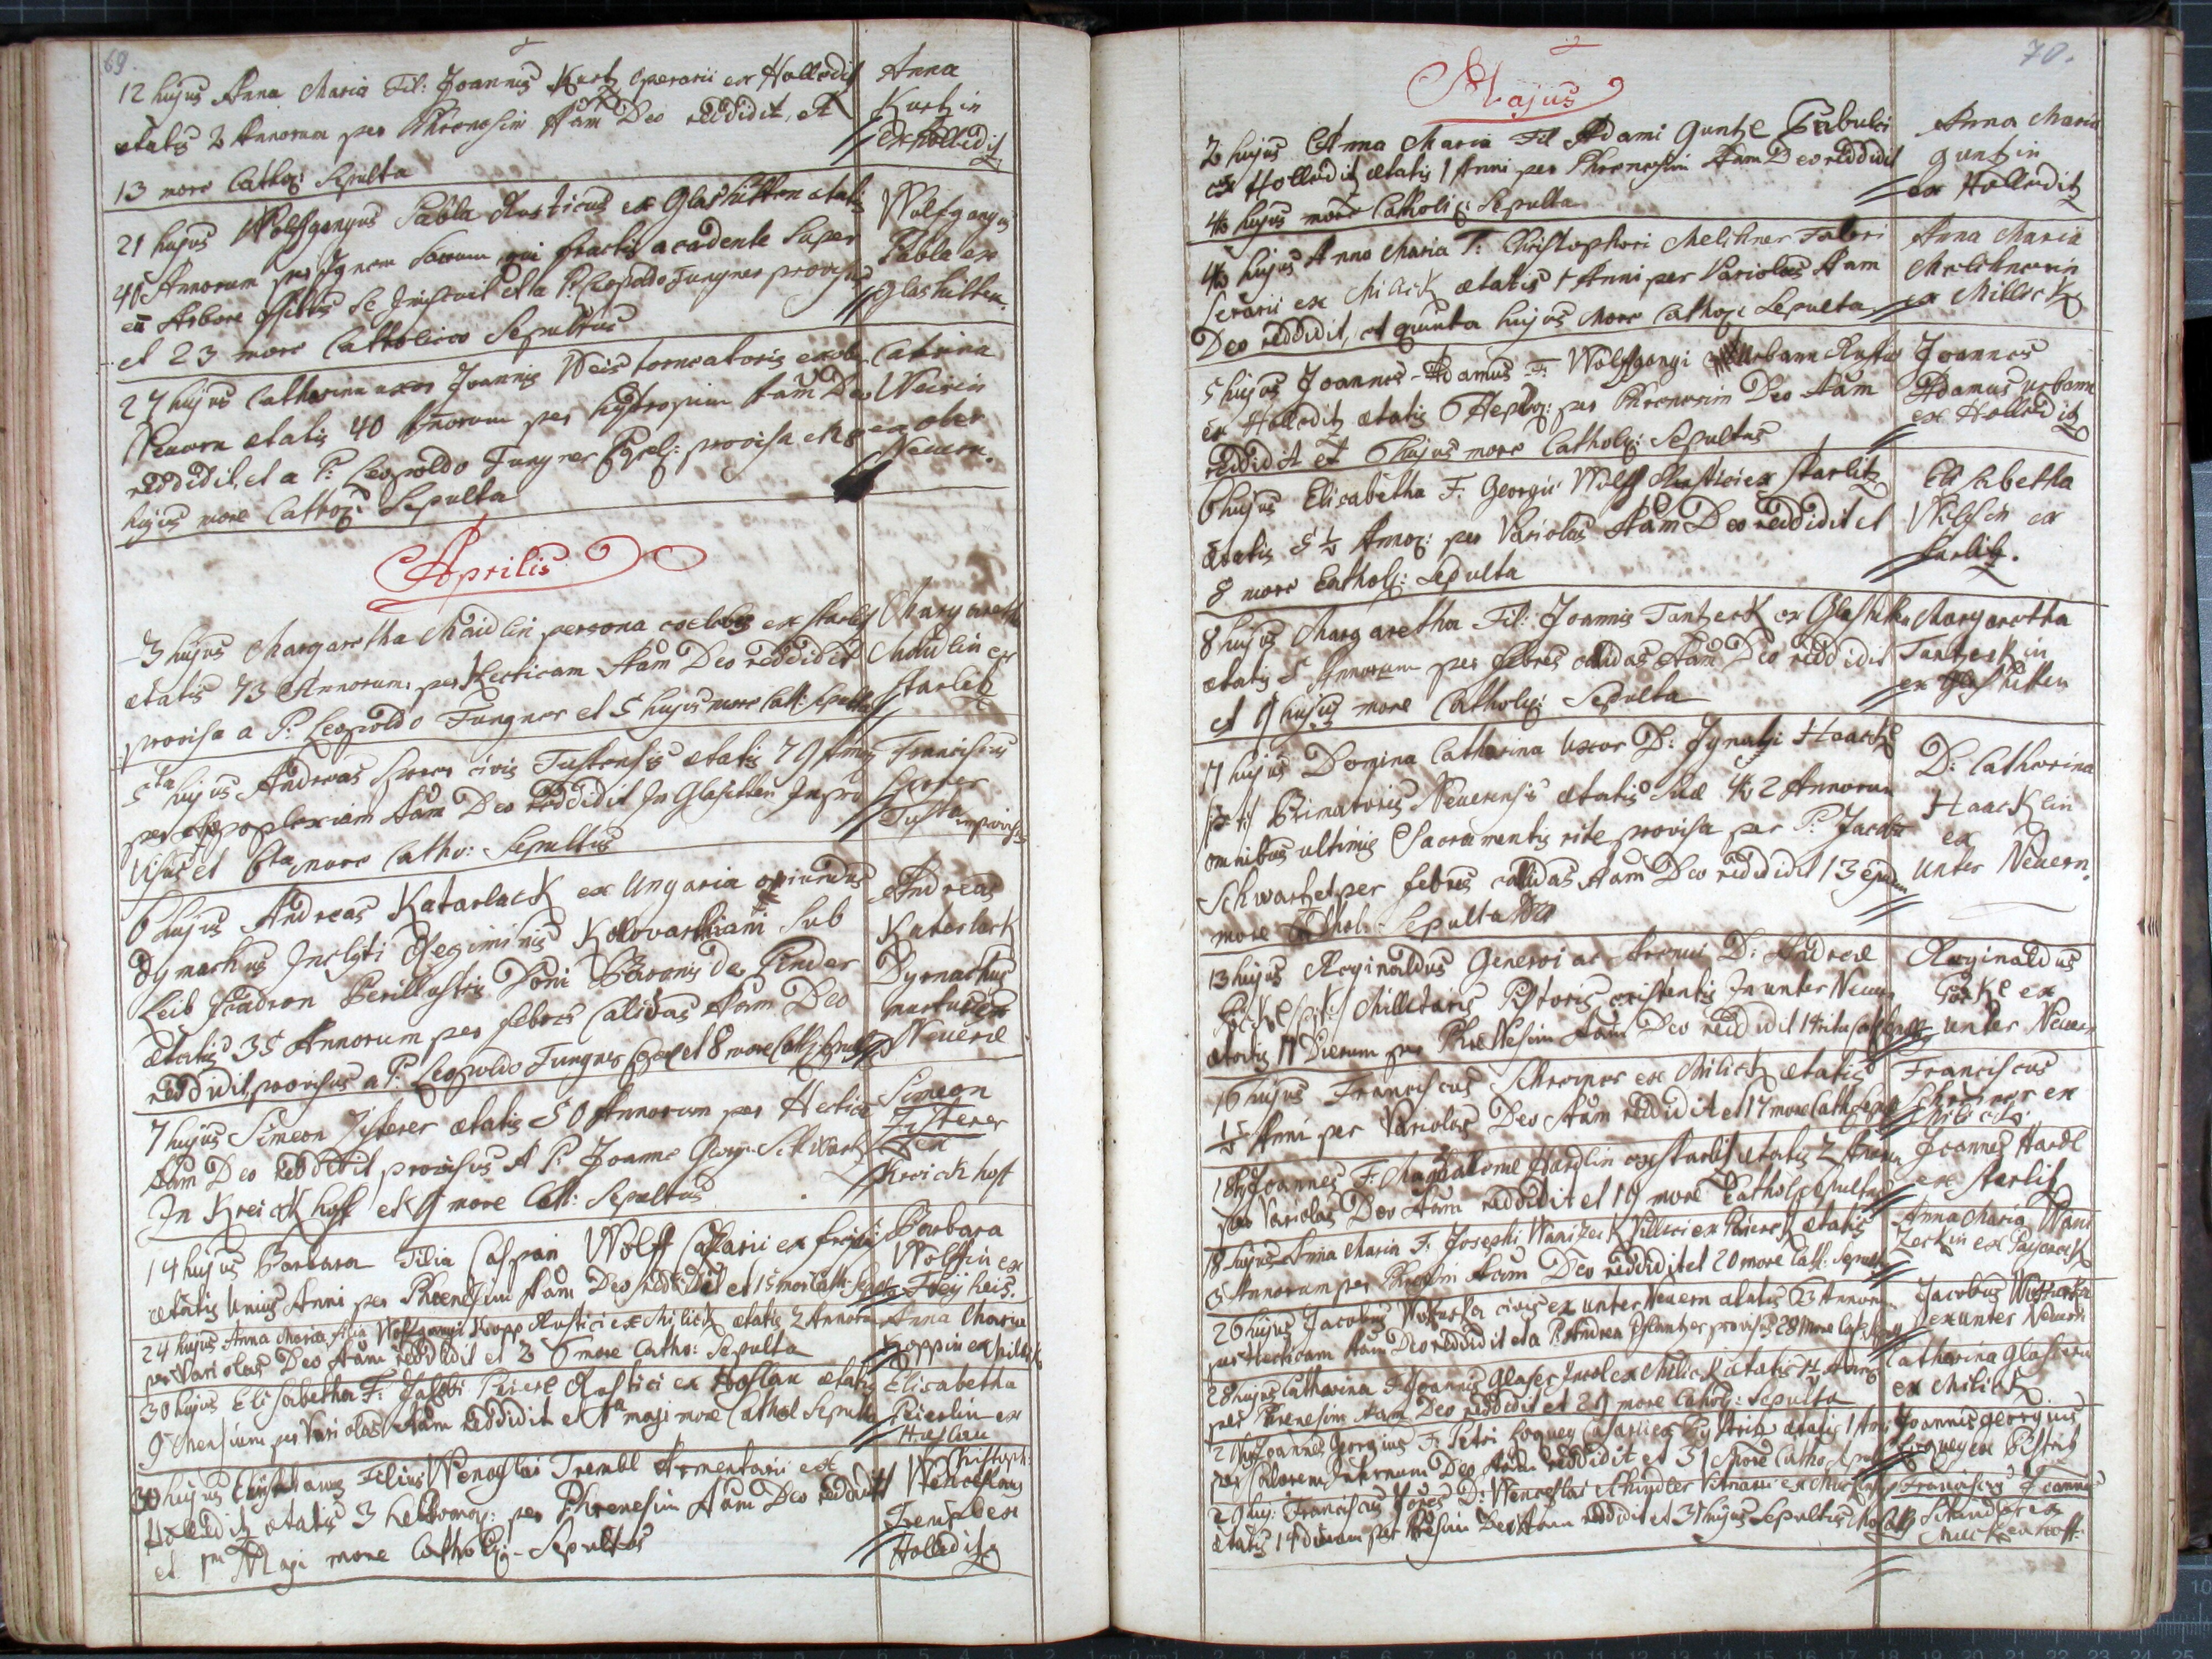 69.
12 hujus Anna Maria Fil: Joannis Kurtz operarii ex Holleditz
ætatis 2 Annorum per Phrenesim Aãm Deo reddidit, et
13 more Cathoq: Sepulta
Anna
Kurtzin
ex Holleditz
21 hujus Wolfgangus Pabla Rusticus ex Glashütten ætatis
45 Annorum per Ignem Sacrum qui fractis a cadente super
eũ Arbore se et a P: Leopoldo Fungner provisus
et 23 more Catholicoo Sepultus
Wolfgangus
Pabla ex
Glashütten.
27 hujus Catharina uxor Joannis Weis torneatoris ex ober
Neuern ætatis 40 Annorum per hydropsim Aãm Deo
reddidit, et a P: Leopoldo Fungner provisa
hujus more Cathoq: Sepulta
Catrina
Weisin
ex ober
Neuern.
Aprilis
3 hujus Margaretha Maidlin persona coelebs ex Starlitz
ætatis 73 Annorum, per Hecticam Aãm Deo reddidit
provisa a P: Leopoldo Fungner et 5 hujus more Cath: Sepulta
Margaretha
Maidlin ex
Starlitz
5ta hujus Andreas Sporer civis Tustensis ætatis 79
per Appoplexiam Aãm Deo reddidit In Glasitten Inpro
visus et 6ta more Catho: Sepultus
Franciscus
Sporer
Tusta improvisus
6 hujus Andreas Katarlack ex Ungaria oriundus
Dymachus Inclyti Regiminis Kolovathiani Sub
Leib Perillustris Doni Baronis de
ætatis 35 Annorum per febres Calidas Aãm Deo
reddidit, provisus a P: Leopoldo Fungner et 8 more Cath: Sepultus
Andreas
Katerlack
Dymachus
mortuus ex
Neueræ
7 hujus Simeon Zisterer ætatis 50 Annorum per Hectica
Aãm Deo reddidit provisus A P: Joanne Georg: Schwartz
In Kreickhoff et 9 more Cath: Sepultus
Simeon
Zisterer
ex
Kreickhoff
14 hujus Barbara Filia Caspari Wolff Casarii ex
ætatis Unius Anni per Phrenesim Aãm Deo reddidit et 15 more Cath: Sepulta
Barbara
Wolffin ex
Freyheis.
24 hujus Anna Maria filia Wolfgangi Kopp Rustici ex Milick ætatis 2 Annorum
per Variolas Deo Aãm reddidit et 26 more Catho: Sepulta
Anna Maria
Koppin ex Milick
30 hujus Elisabetha F: Jacobi Peierl Rustici ex Hoslau ætatis
9 Mensium per Variolas Aãm reddidit et 1a maji more Cathol Sepulta
Elisabetha
Peierlin ex
Haslau
30 hujus Filius Wenceslai Trembl Armentarii ex
Holleditz ætatis 3 hebdomq: per Phrenesim Aãm Deo reddidit
et 1ma Maji more Catholiq: Sepultus
Christoph:
Wenceslaus
Trempl ex
Holleditz
70.
Majus
2 hujus Anna Maria Fil Adami Guntzl Bubulci
ex Holleditz ætatis 1 Anni per Phrenesim Aãm Deo reddidit
4 hujus more Catholiq: Sepulta
Anna Maria
Guntzin
ex Holleditz
4 hujus Anna Maria F: Christophori Melchner Fabri
Serarii ex Milick ætatis 1 Anni per Variolas Aam
Deo reddidit, et quinta hujus More Cathoq: Sepulta
Anna Maria
Melchnerin
ex Millick
5 hujus Joannes Adamus F: Wolfgangi Urbann Rustici
ex Holleditz ætatis 6 Hepdoq: per Phrenesim Deo Aãm
reddidit et 6 hujus more Catholq: Sepultus
Joannes
Adamus Urbann
ex Holleditz
6 hujus Elisabetha F: Georgii Wolf Rustici ex Starlitz
ætatis 5 ½ Annoq: per Variolas Aãm Deo reddidit et
8 more Catholq: Sepulta
Elisabetha
Wolfin ex
Starlitz.
8 hujus Margaretha Fil: Joannis Tantzerk ex Glashütten
ætatis 5 Annorum per febres calidas Aãm Deo reddidit
et 9 hujus more Catholiq: Sepulta
Margaretha
Tantzerkin
ex Glashütten
11 hujus Domina Catharina Uxor D: Ignatzi Haackl
Primatoris Neuerensis ætatis Suæ 42 Annorum
omnibus ultimis Sacramentis rite provisa per P: Jacob
Schwartz et per febres calidas Aãm Deo reddidit 13 ejusdem
more Cathol: Sepulta
D: Catharina
Haacklin
ex
Unter Neuern.
13 hujus Reginaldus Generosi ac Strenui D: Andreæ
Militaris Pistoris existentis In unter Neuern
ætatis 11 Dierum per Phrenesim Aãm Deo reddidit 14 ritu
Reginaldus
ex
Unter Neuern
16 hujus Franciscus Schreiner ex Milick ætatis
Anni per Variolas Deo Aãm reddidit et 17 more Cathol: Sepultus
Franciscus
Schreiner ex
Milick.
18 huj Joannes F: Magdalenæ Hardlin ex Starlitz ætatis 2 Annorum
per Variolas Deo Aãm reddidit et 19 more Cathol: Sepultus
Joannes Hardl
ex Starlitz
18 hujus Anna Maria F: Josephi Wanizeck Villici ex Paiereck ætatis
3 Annorum per Phresin Aãm Deo reddidit et 20 more Cath: Sepulta
Anna Maria Wani
zeckin ex Payereck
26 hujus Jacobus civis ex unter Neuern ætatis 63 Annorum
per Hecticam Aãm Deo reddidit et a P: Andrea Pflantzer provisus 28 More Cath: Sepultus
Jacobus
ex unter Neuern
28 hujus Catharina F: Joannis Glaser Incol ex Milick ætatis
per Phrenesim Aam Deo reddidit et 29 more Catholq: Sepulta
Catharina Glaserin
ex Milick.
Joannes Georgius F: Petri Loquey Casarii ex ætatis 1 Anni
per Calorem Internum Deo Aãm reddidit et 31 More Catho: Sepultus
Joannis Georgius
Loquey ex
29 huj: Franciscus D: Wenceslai Schindler
ætatis 14 dierum per Deo Aãm reddidit et 31 hujus Sepultus
Franciscus Joannes
Schindler ex